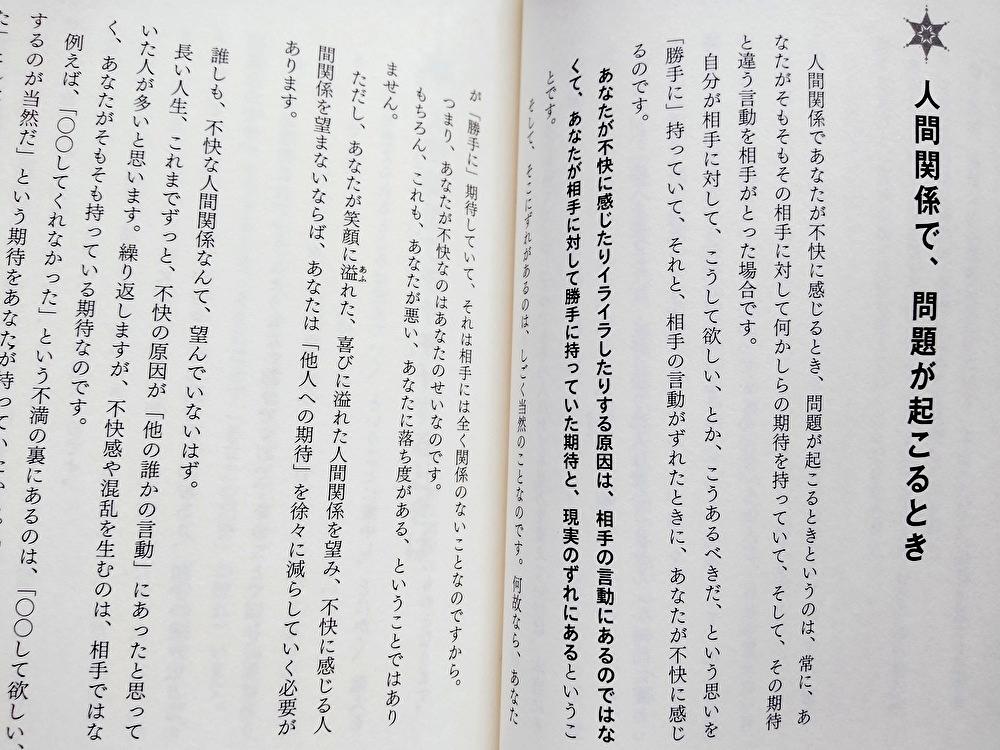 人間関係で、問題が起こるとき
人間関係であなたが不快に感じるとき、問題が起こるときというのは、常に、あ
なたがそもそもその相手に対して何かしらの期待を持っていて、そして、その期待
と違う言動を相手がとった場合です。
自分が相手に対して、こうして欲しい、とか、こうあるべきだ、という思いを
「勝手に」持っていて、それと、相手の言動がずれたときに、あなたが不快に感じ
るのです。
あなたが不快に感じたりイライラしたりする原因は、相手の言動にあるのではな
くて、あなたが相手に対して勝手に持っていた期待と、現実のずれにあるというこ
とです。
そして、そこにずれがあるのは、しごく当然のことなのです。何故なら、あなた
が「勝手に」期待していて、それは相手には全く関係のないことなのですから。
つまり、あなたが不快なのはあなたのせいなのです。
もちろん、これも、あなたが悪い、あなたに落ち度がある、ということではあり
ません。
ただし、あなたが笑顔に溢れた、喜びに溢れた人間関係を望み、不快に感じる人
間関係を望まないならば、あなたは「他人への期待」を徐々に減らしていく必要が
あります。
誰しも、不快な人間関係なんて、望んでいないはず。
長い人生、これまでずっと、不快の原因が「他の誰かの言動」にあったと思って
いた人が多いと思います。繰り返しますが、不快感や混乱を生むのは、相手ではな
く、あなたがそもそも持っている期待なのです。
例えば、「〇〇してくれなかった」という不満の裏にあるのは、「〇〇して欲しい、
するのが当然だ」という期待をあなたが持っていた